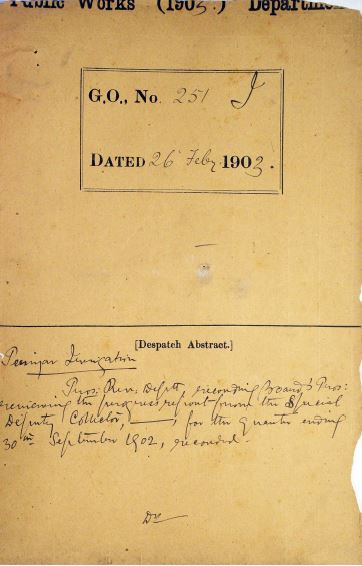 Public Works (1903.) Department
G.O., No. 251 I
Dated 26th Feby 1903.
[Despatch Abstract.]
Periyar Irrigation
Pros: Rev: Deptt, recording Board's Pros:
reviewing the progress report from the Special
Deputy Collector, ——, for the quarter ending
30th September 1902, recorded.